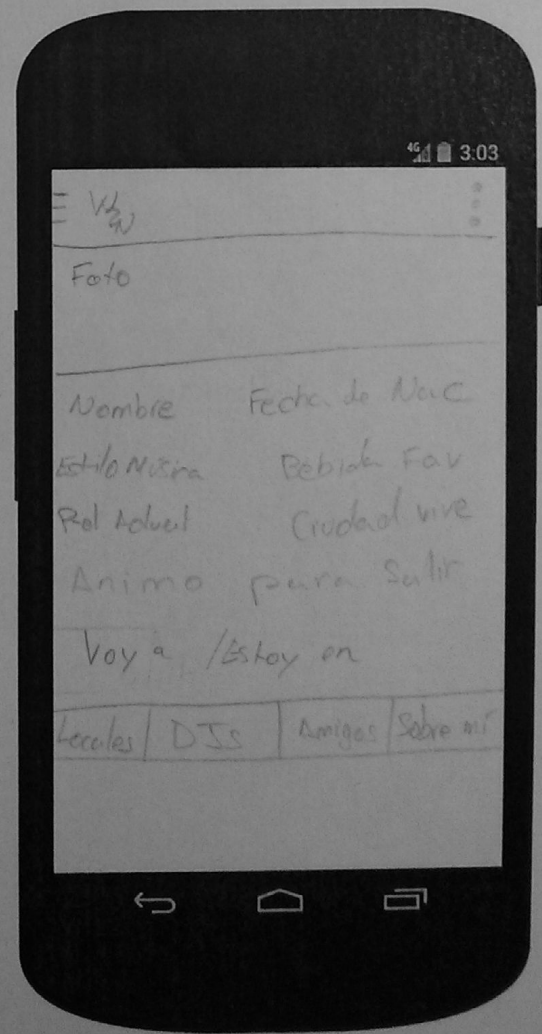 4G 3:03
Foto
Nombre Fecha de Nac
Estilo Musica Bebida Fav
Rol Actual Ciudad vive
Animo para Salir
Voy a /Estoy en
Locales DJs Amigos Sobre mi